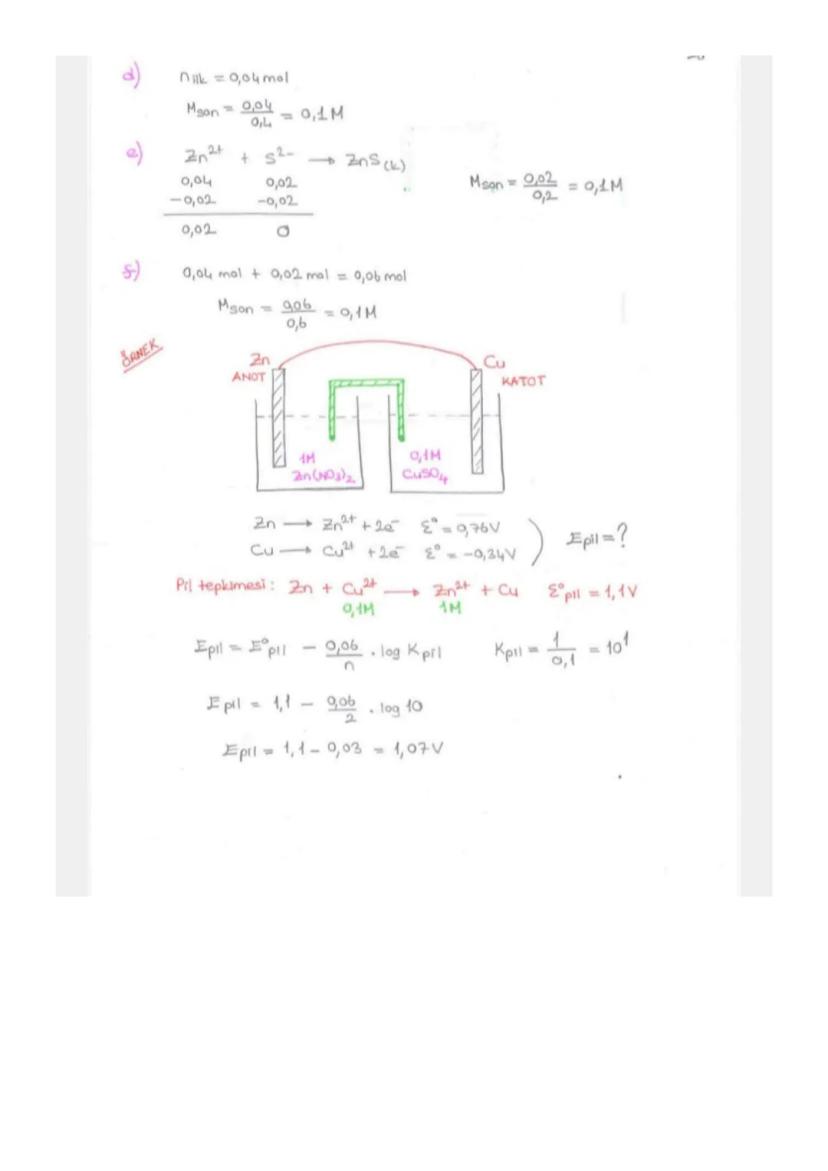 d) nilk = 0,04 mol
Mson = 0,04/0,4 = 0,1M
e) Zn²⁺ + S²⁻ → ZnS(k)
0,04 0,02
-0,02 -0,02
0,02 0
Mson = 0,02/0,2 = 0,1M
f) 0,04 mol + 0,02 mol = 0,06 mol
Mson = 0,06/0,6 = 0,1M
ÖRNEK
Zn Cu
ANOT KATOT
1M 0,1M
Zn(NO₃)₂ CuSO₄
Zn → Zn²⁺ + 2e⁻ Ɛ° = 0,76V
Cu → Cu²⁺ + 2e⁻ Ɛ° = -0,34V
Epil = ?
Pil tepkimesi: Zn + Cu²⁺ → Zn²⁺ + Cu Ɛ°pil = 1,1V
0,1M 1M
Epil = E°pil - 0,06/n . log Kpil Kpil = 1/0,1 = 10¹
Epil = 1,1 - 0,06/2 . log 10
Epil = 1,1 - 0,03 = 1,07V